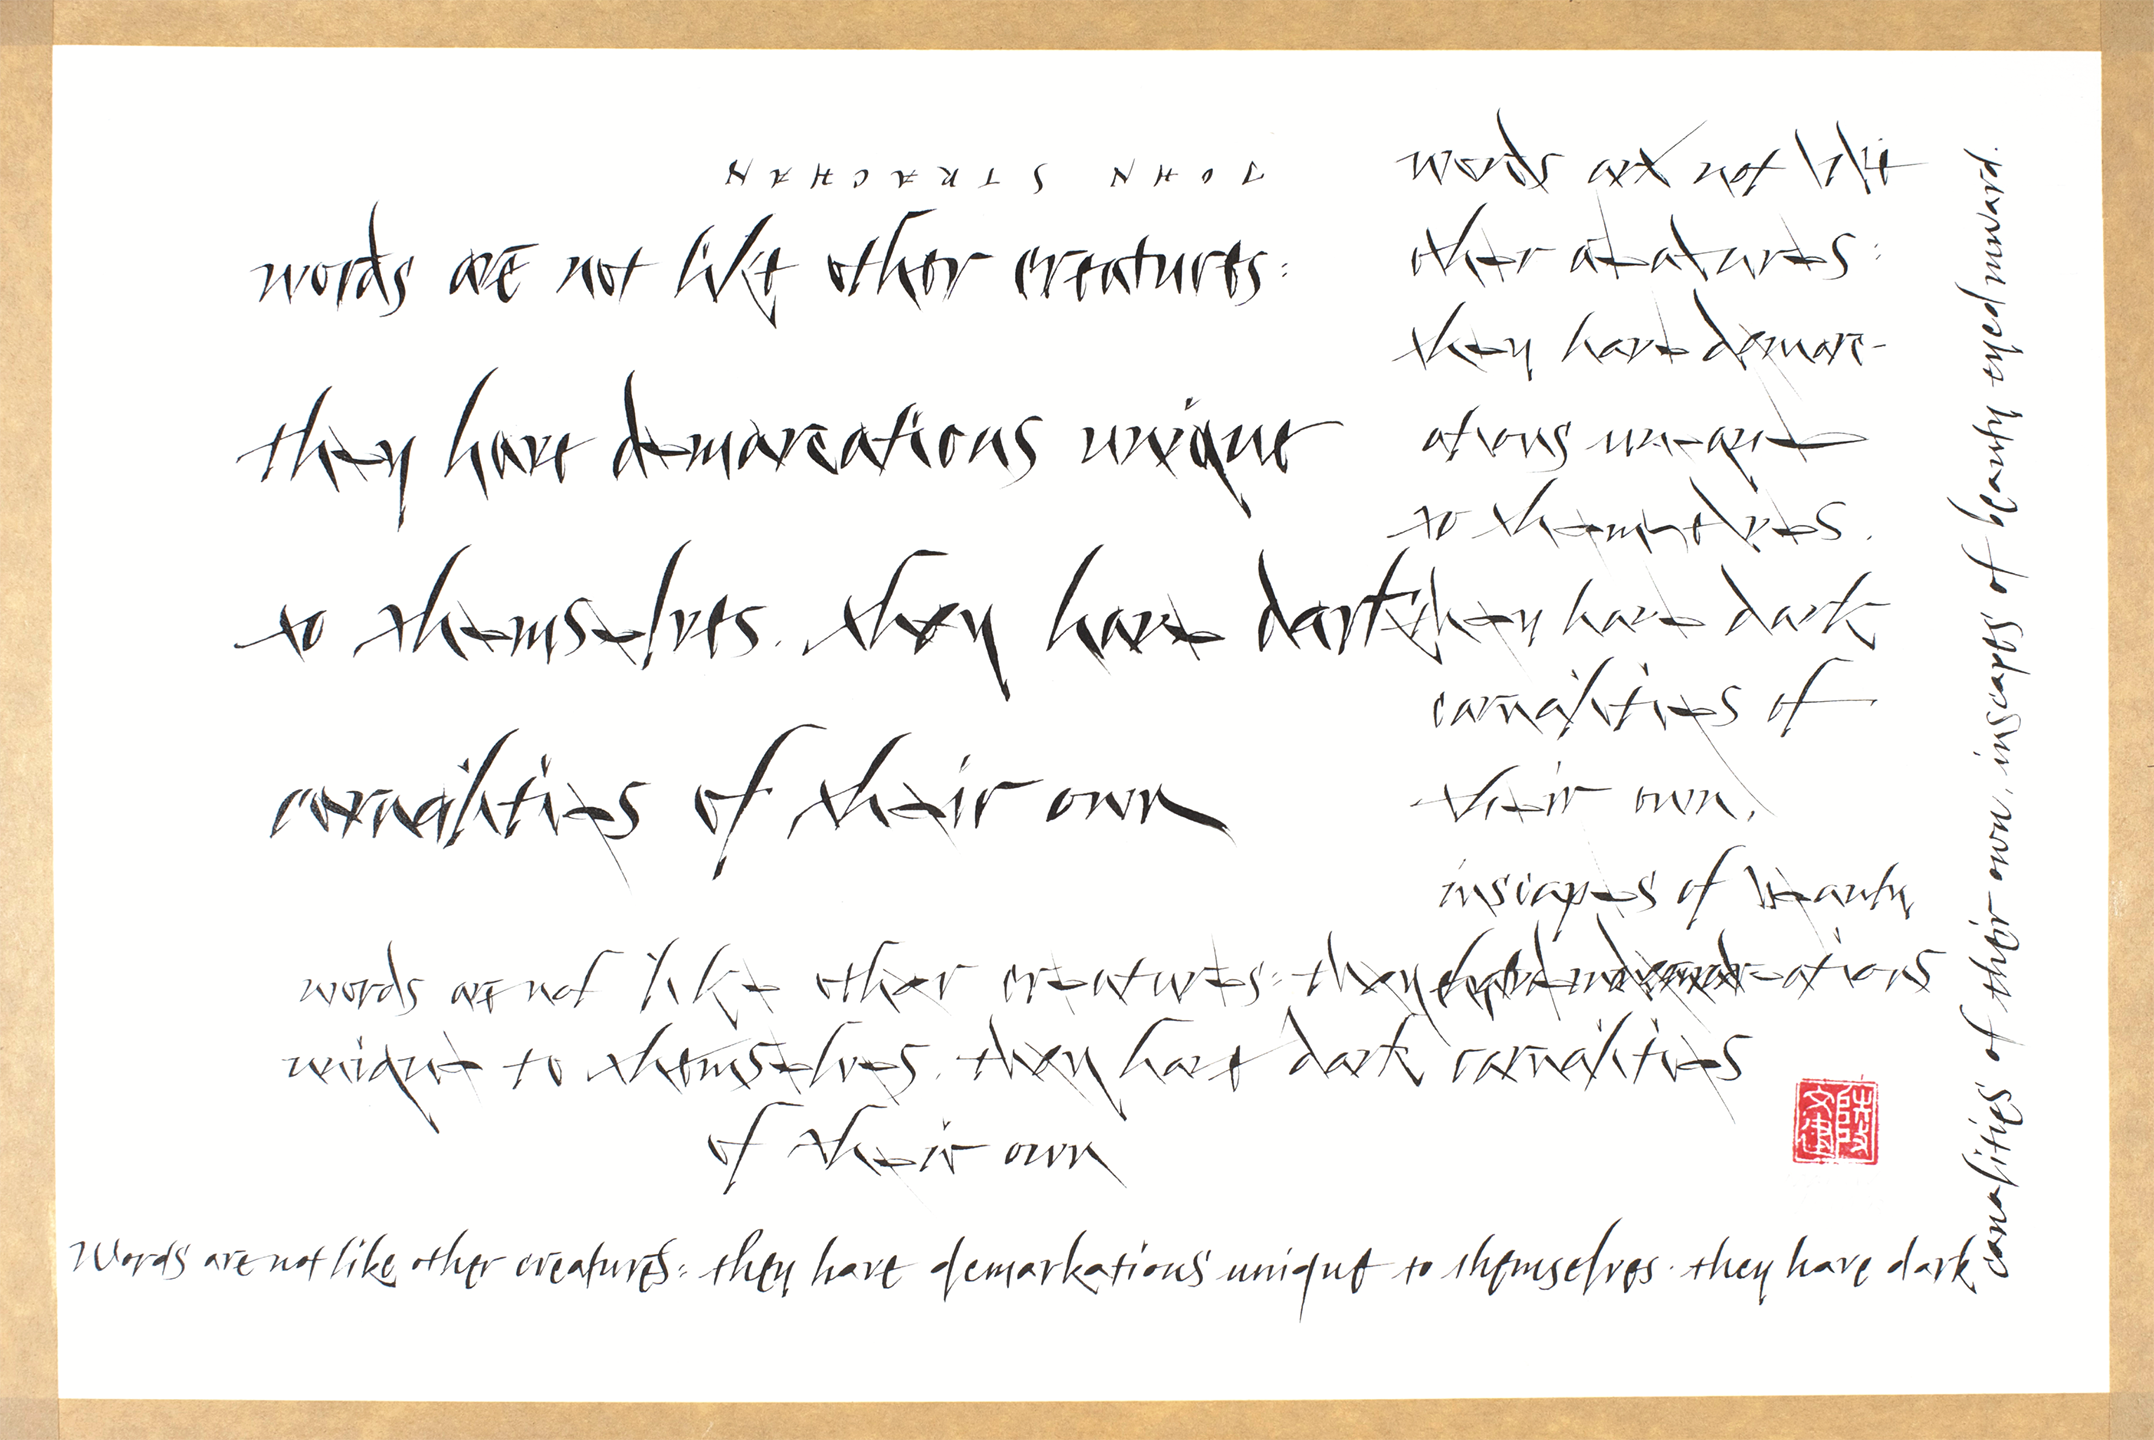 JOHN STRACHAN
words are not like other creatures:
they have demarcations unique
to themselves. they have dark
carnalities of their own
words are not like
other creatures:
they have demarc-
ations unique
to themselves.
they have dark
carnalities of
their own,
inscapes of beauty
eyed inward
words are not like other creatures: they have demarcations
unique to themselves. they have dark carnalities
of their own
Words are not like other creatures: they have demarkations unique to themselves. they have dark
canalities of their own, inscapes of beauty eyed inward.